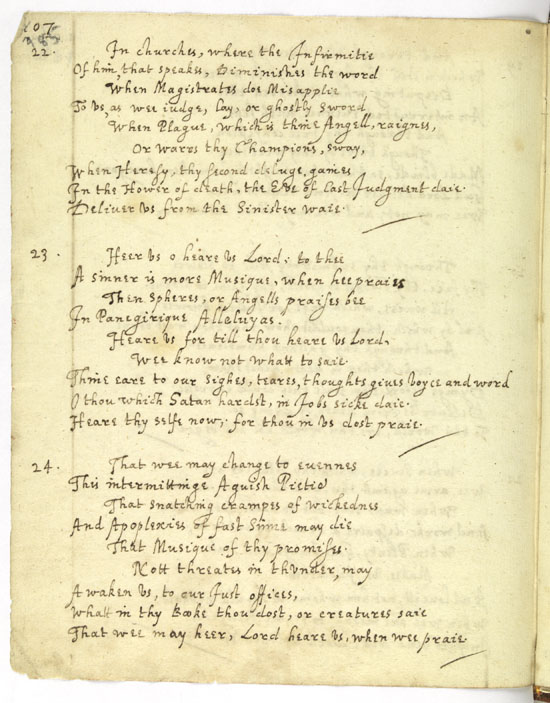 107
22. In churches, where the Infirmitie
Of him, that speakes, Diminishes the word
When Magistrates doe Misapplie
To Vs, as wee iudge, Lay, or ghostly sword
When Plague, which is thine Angell, raignes,
Or warrs thy Champions, sway,
When Heresy, thy second deluge, gaines
In the Hower of death, the Eve of Last Judgment daie.
Deliver vs from the Sinister waie.
23. Heer vs o heare vs Lord; to thee
A sinner is more Musique, when hee praies
Then Spheres, or Angells praises bee
In Panegirique Alleluyas.
Heare vs for till thou heare vs Lord,
Wee know not whatt to saie.
Thine eare to our sighes, teares, thoughts gives voyce and word
O thou which Satan hardst, in Jobs sicke daie.
Heare thy selfe now, for thou in vs dost praie.
24. That wee may change to evennes
This intermittinge Aguish Pietie
That snatching crampes of wickednes
And Apoplexies of fast Sinne may die
That Musique of thy promises.
Nott threates in thvnder, may
Awaken vs, to our Just offices,
Whatt in thy Booke thou dost, or creatures saie
That wee may heer, Lord heare vs, when wee praie.